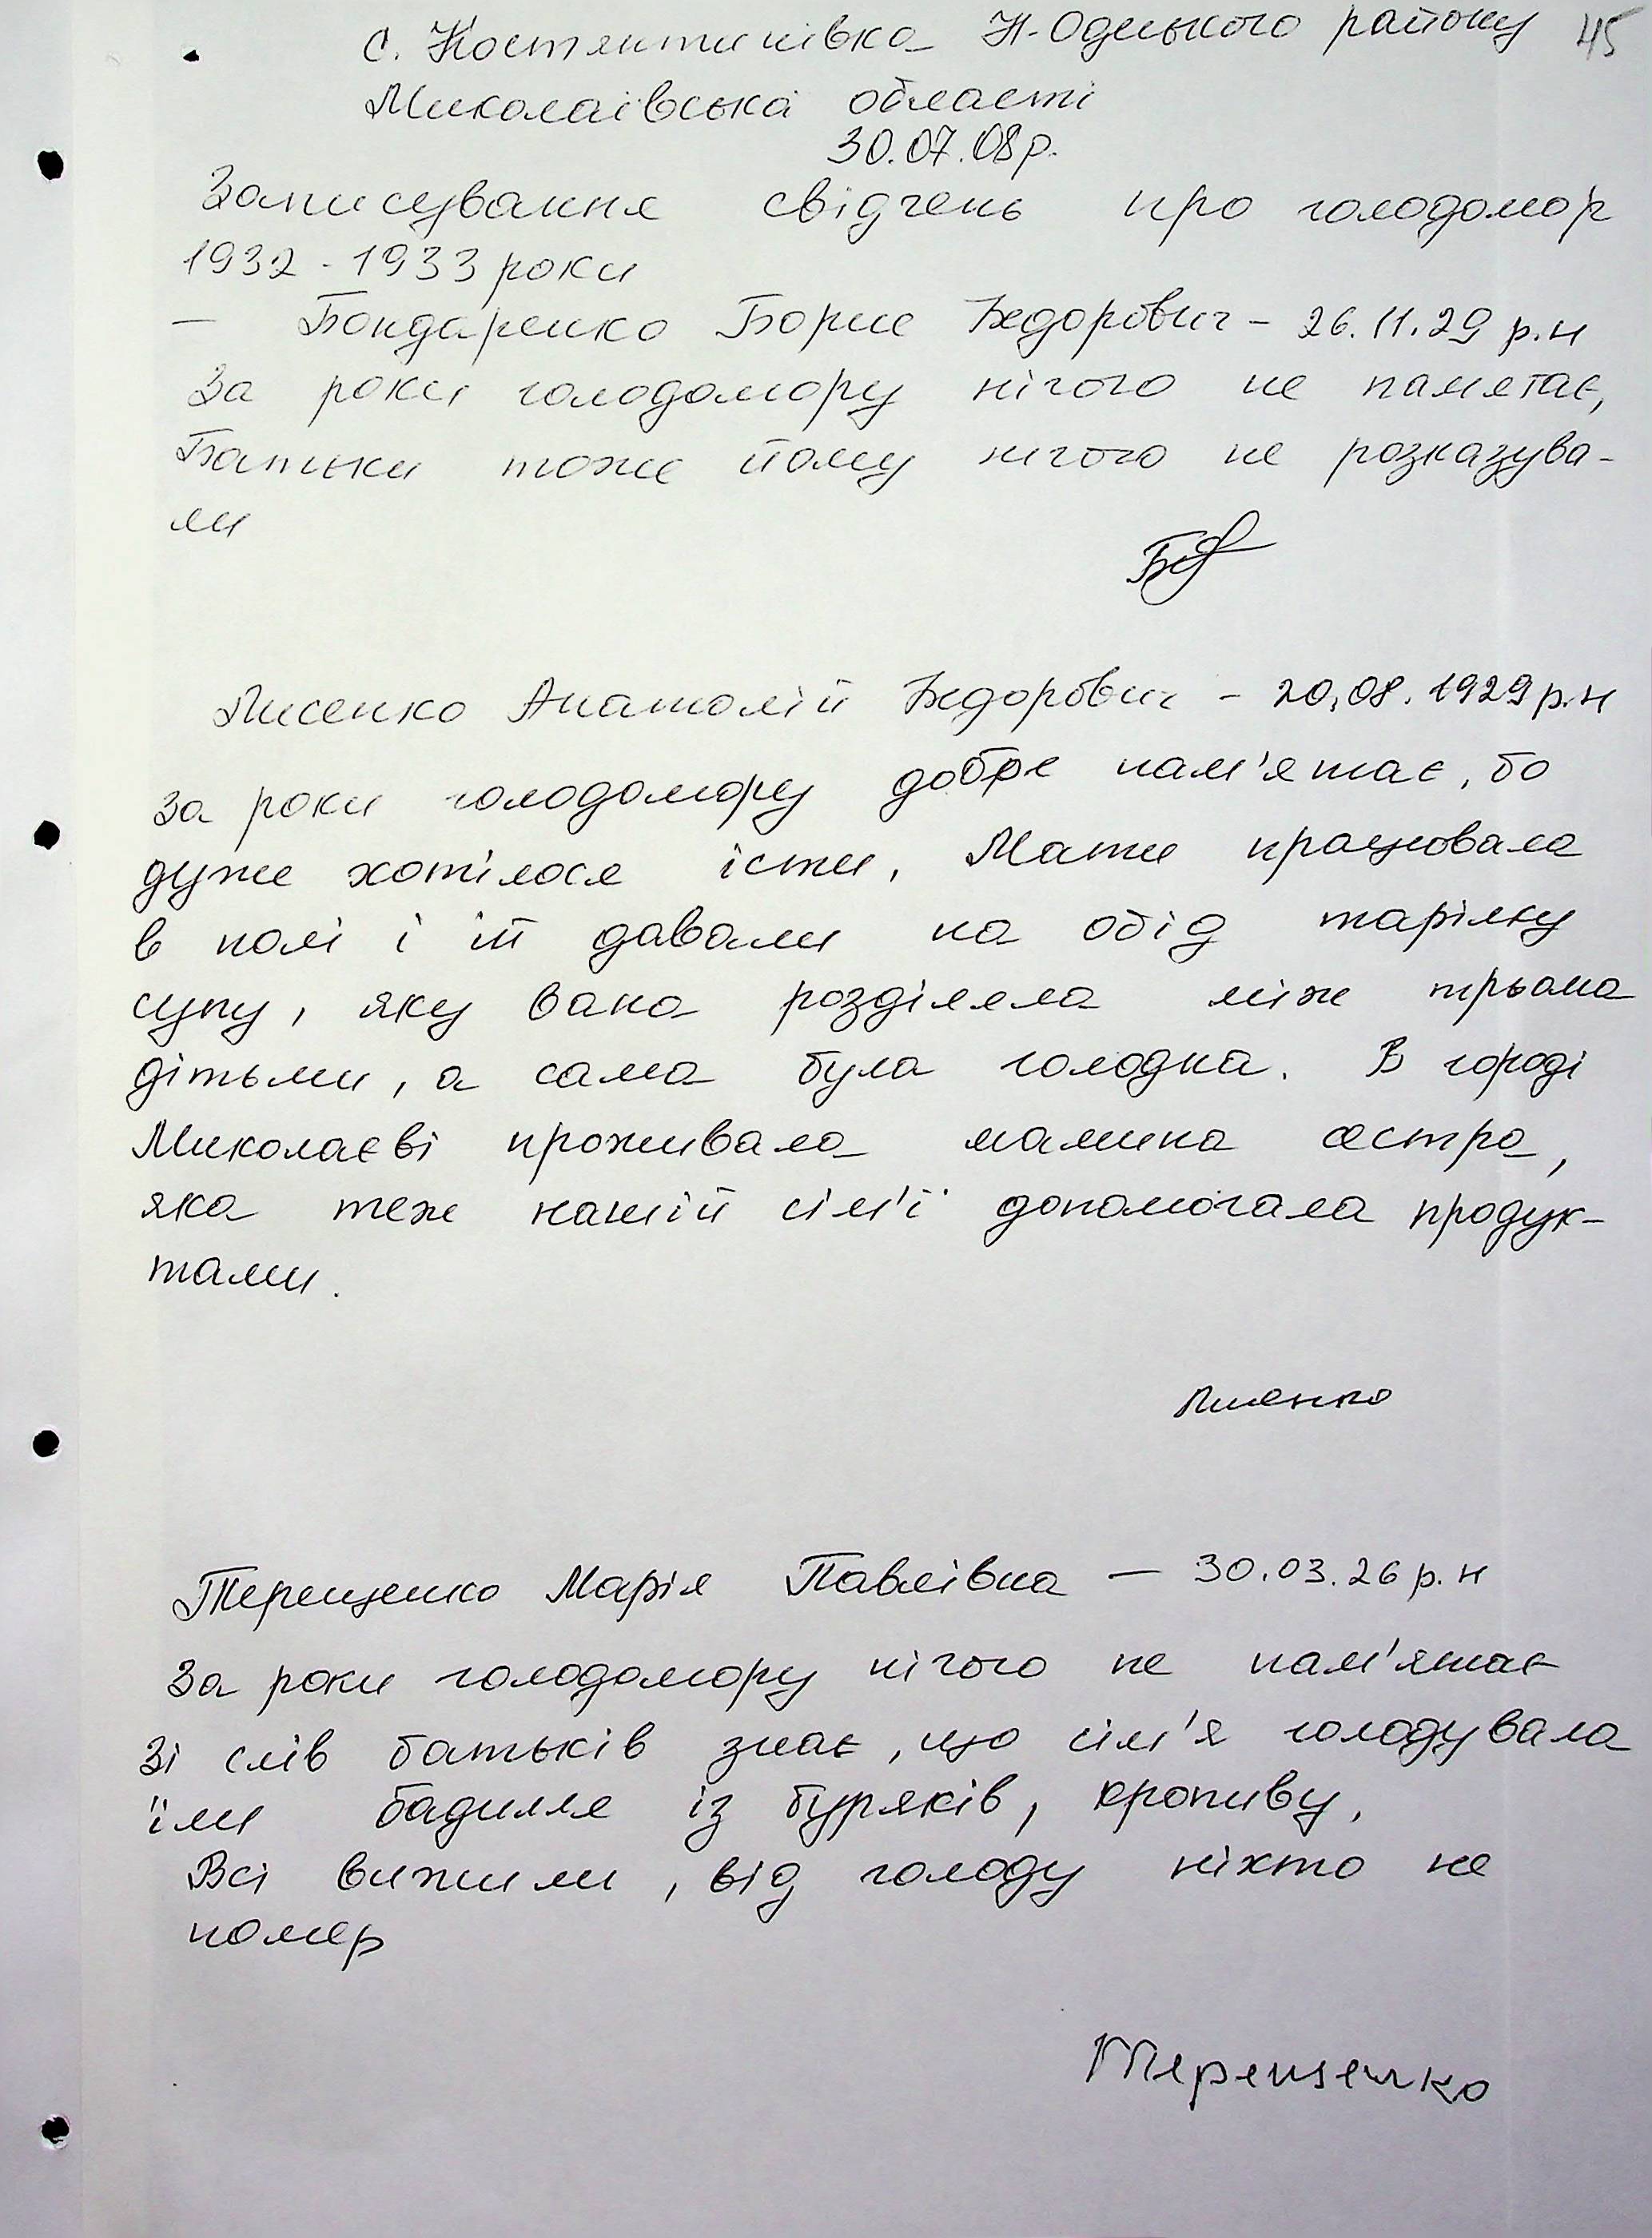 с. Костянтинівка Н-Одеського району 45
Миколаївська області
30.07.08р.
Записування свідчень про голодомор
1932-1933 роки
— Бондаренко Борис Федорович - 26.11.29 р.н
За роки голодомору нічого не памятає,
Батьки тоже йому нічого не розказува-
ли
Лисенко Анатолій Федорович - 20.08.1929 р.н
за роки голодомору добре пам'ятає, бо
дуже хотілося їсти, Мати працювала
в полі і їй давали на обід тарілку
супу, яку вона розділяла між трьома
дітьми, а сама була голодна. В городі
Миколаєві проживала мамина сестра,
яка теж нашій сім'ї допомогала продук-
тами.
Лисенко
Терещенко Марія Павлівна — 30.03.26 р.н
За роки голодомору нічого не пам'ятає
Зі слів батьків знає, що сім'я голодувала
їли бадилля із буряків, кропиву,
Всі вижили, від голоду ніхто не
помер
Терещенко